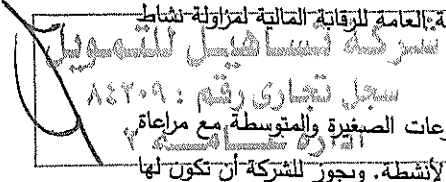 العامة للرقابة المالية لمزاولة نشاط
شركة تساهيل للتمويل
سجل تجارى رقم : ٨٤٢٠٩
عات الصغيرة والمتوسطة مع مراعاة
ادارة عامة ٢
لأنشطة. ويجوز للشركة أن تكون لها